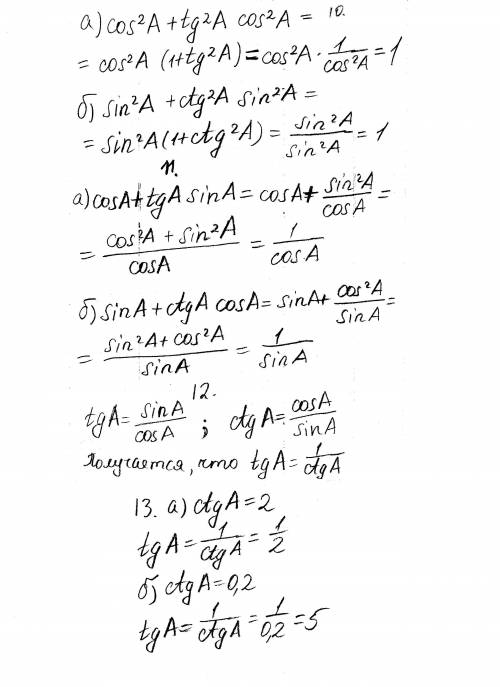 а) cos²A + tg²A cos²A = 10.
= cos²A (1+tg²A) = cos²A · 1/cos²A = 1
б) sin²A + ctg²A sin²A =
= sin²A (1+ctg²A) = sin²A/sin²A = 1
11.
а) cosA + tgA sinA = cosA + sin²A/cosA =
= (cos²A + sin²A)/cosA = 1/cosA
б) sinA + ctgA cosA = sinA + cos²A/sinA =
= (sin²A + cos²A)/sinA = 1/sinA
12.
tgA = sinA/cosA ; ctgA = cosA/sinA
Получается, что tgA = 1/ctgA
13. а) ctgA = 2
tgA = 1/ctgA = 1/2
б) ctgA = 0,2
tgA = 1/ctgA = 1/0,2 = 5